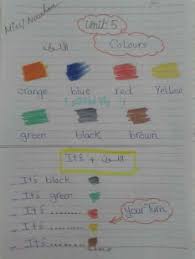 Unit 5
Colours
orange blue red Yellow
green black brown
It's +
It's black
It's green
It's ..........
It's ..........
It's ..........
Your Turn